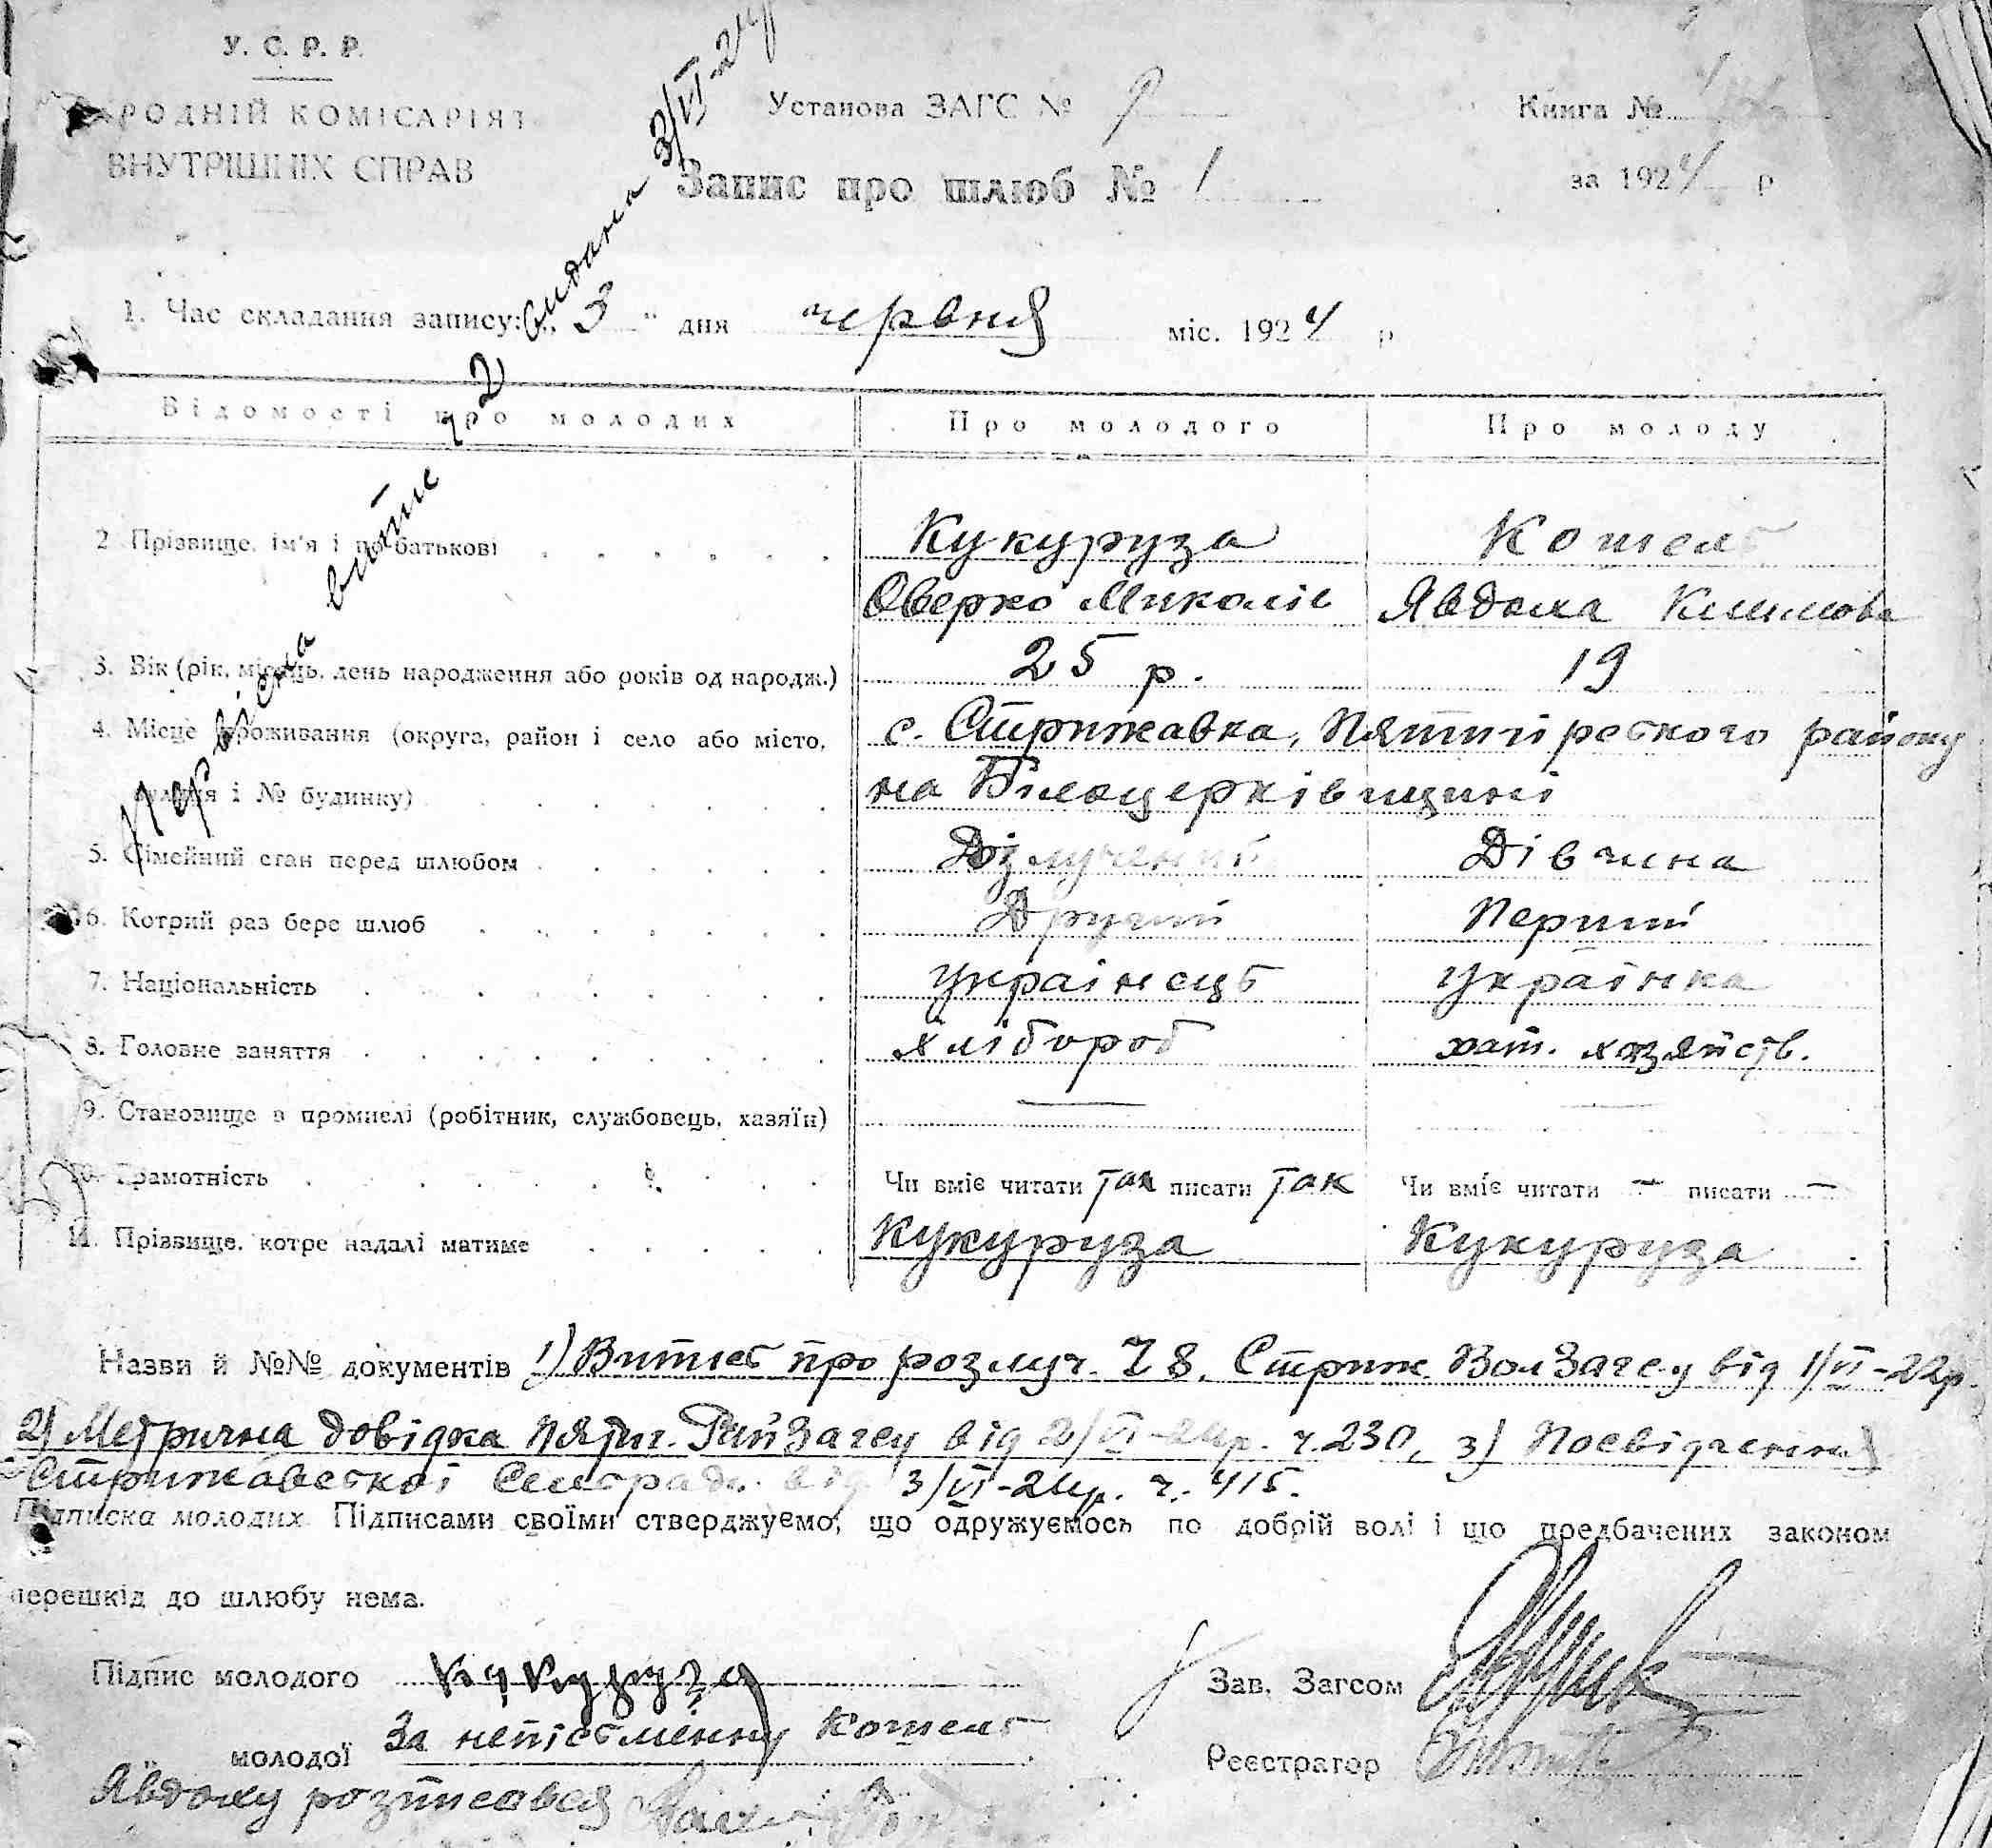 У. С. Р. Р.
НАРОДНІЙ КОМІСАРІЯТ
ВНУТРІШНІХ СПРАВ
Установа ЗАГС №
Книга №
Запис про шлюб № 1
за 1924 р
Первісна виписка видана 3/VI-24р
1. Час складання запису: „3" дня червня міс. 1924 р
Відомості про молодих Про молодого Про молоду
2 Прізвище, ім'я і по батькові Кукуруза Кошель
Оверко Миколів Явдоха Климова
3. Вік (рік, місяць, день народження або років од народж.) 25 р. 19
4. Місце проживання (округа, район і село або місто, с. Стрижавка, Пятигірського району
вулиця і № будинку) на Білоцерківщині
5. Сімейний стан перед шлюбом Розлучений Дівчина
6. Котрий раз бере шлюб Другий Перший
7. Національність Українець Українка
8. Головне заняття хлібороб хат. хозяйств.
9. Становище в промислі (робітник, службовець, хазяїн) — —
10. Грамотність Чи вміє читати так писати так Чи вміє читати — писати —
11. Прізвище, котре надалі матиме Кукуруза Кукуруза
Назви й №№ документів 1) Витпсь про розлуч. Ч 8. Стриж. ВолЗагсу від 1/VI-22р.
2) Метрична довідка Пятиг. РайЗагсу від 2/VI-24р. ч. 230, 3) Посвідчення
Стрижавської Сільради від 3/VI-24р. ч. 415.
Підписка молодих Підписами своїми стверджуємо, що одружуємось по добрій волі і що предбачених законом
перешкід до шлюбу нема.
Підпис молодого Кукуруза
Зав. Загсом
молодої За неписьменну Кошель
Реєстратор
Явдоху розписався